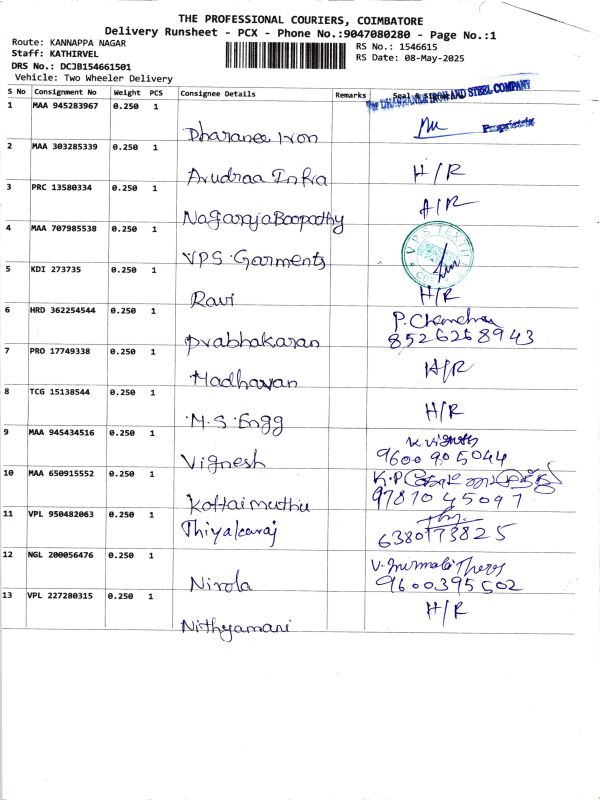 THE PROFESSIONAL COURIERS, COIMBATORE
Delivery Runsheet - PCX - Phone No.:9047080280 - Page No.:1
Route: KANNAPPA NAGAR
Staff: KATHIRVEL
DRS No.: DCJB154661501
Vehicle: Two Wheeler Delivery
RS No.: 1546615
RS Date: 08-May-2025
S No Consignment No Weight PCS Consignee Details Remarks Seal &
For DHARANEE IRON AND STEEL COMPANY
1 MAA 945283967 0.250 1 Dharanee Iron
Proprietrix
2 MAA 303285339 0.250 1 Arudraa Infra H/R
3 PRC 13580334 0.250 1 NagarajaBoopathy H/R
4 MAA 707985538 0.250 1 VPS Garments VPS TEXTIL
5 KDI 273735 0.250 1 Ravi H/R
6 HRD 362254544 0.250 1 Prabhakaran P. Chandran
8526268943
7 PRO 17749338 0.250 1 Madhavan H/R
8 TCG 15138544 0.250 1 M.S. Engg H/R
9 MAA 945434516 0.250 1 Vignesh K Vignesh
9600905044
10 MAA 650915552 0.250 1 Kottaimuthu K.P
9787045097
11 VPL 950482063 0.250 1 Thiyakaraj
6380173825
12 NGL 200056476 0.250 1 Nirola V. Nirmala
9600395502
13 VPL 227280315 0.250 1 Nithyamani H/R